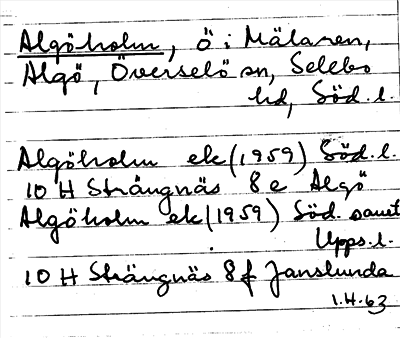 Algöholm, ö i Mälaren,
Algö, Överselö sn, Selebo
hd, Söd. l.
Algöholm ek (1959) Söd. l.
10 H Strängnäs 8 e Algö
Algöholm ek (1959) Söd. samt
Upps. l.
10 H Strängnäs 8 f Janslunda
1.4.63